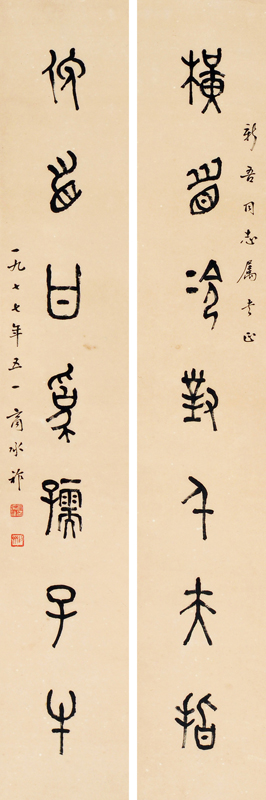 橫眉冷對千夫指
俯首甘為孺子牛
新吾同志屬書正
一九七七年五一商承祚